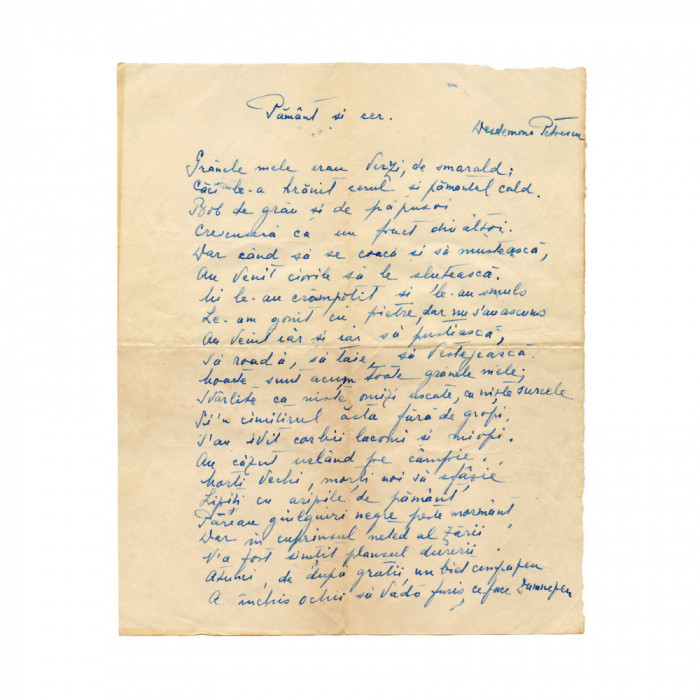 Pământ si cer.
Desdemona Petrescu
Grânele mele erau verzi, de smarald;
Căci le-a hrănit cerul si pământul cald.
Bob de grâu si de păpusoi
Crescuseră ca un fruct din altoi.
Dar când să se coacă si să mustească,
Au venit ciorile să le slutească.
Mi le-au crâmpoțit si le-au smuls
Le-am gonit cu pietre, dar nu s'au ascuns
Au venit iar si iar să pustiască,
Să roadă, să taie, să vestejească.
Moarte sunt acum toate grânele mele;
Svârlite ca niste omizi uscate, ca niste surcele
Si'n cimitirul ăsta fără de gropi,
S'au ivit corbii lacomi si miopi.
Au căzut urlând pe câmpie
Morti vechi, morti noi să sfâsie
Lipiti cu aripile de pământ,
Păreau giulgiuri negre peste mormânt
Dar în cuprinsul neted al zării
N'a fost simtit plânsul durerii.
Atunci, de după gratii un biet
A închis ochii să vadă furis, ce face Dumnezeu